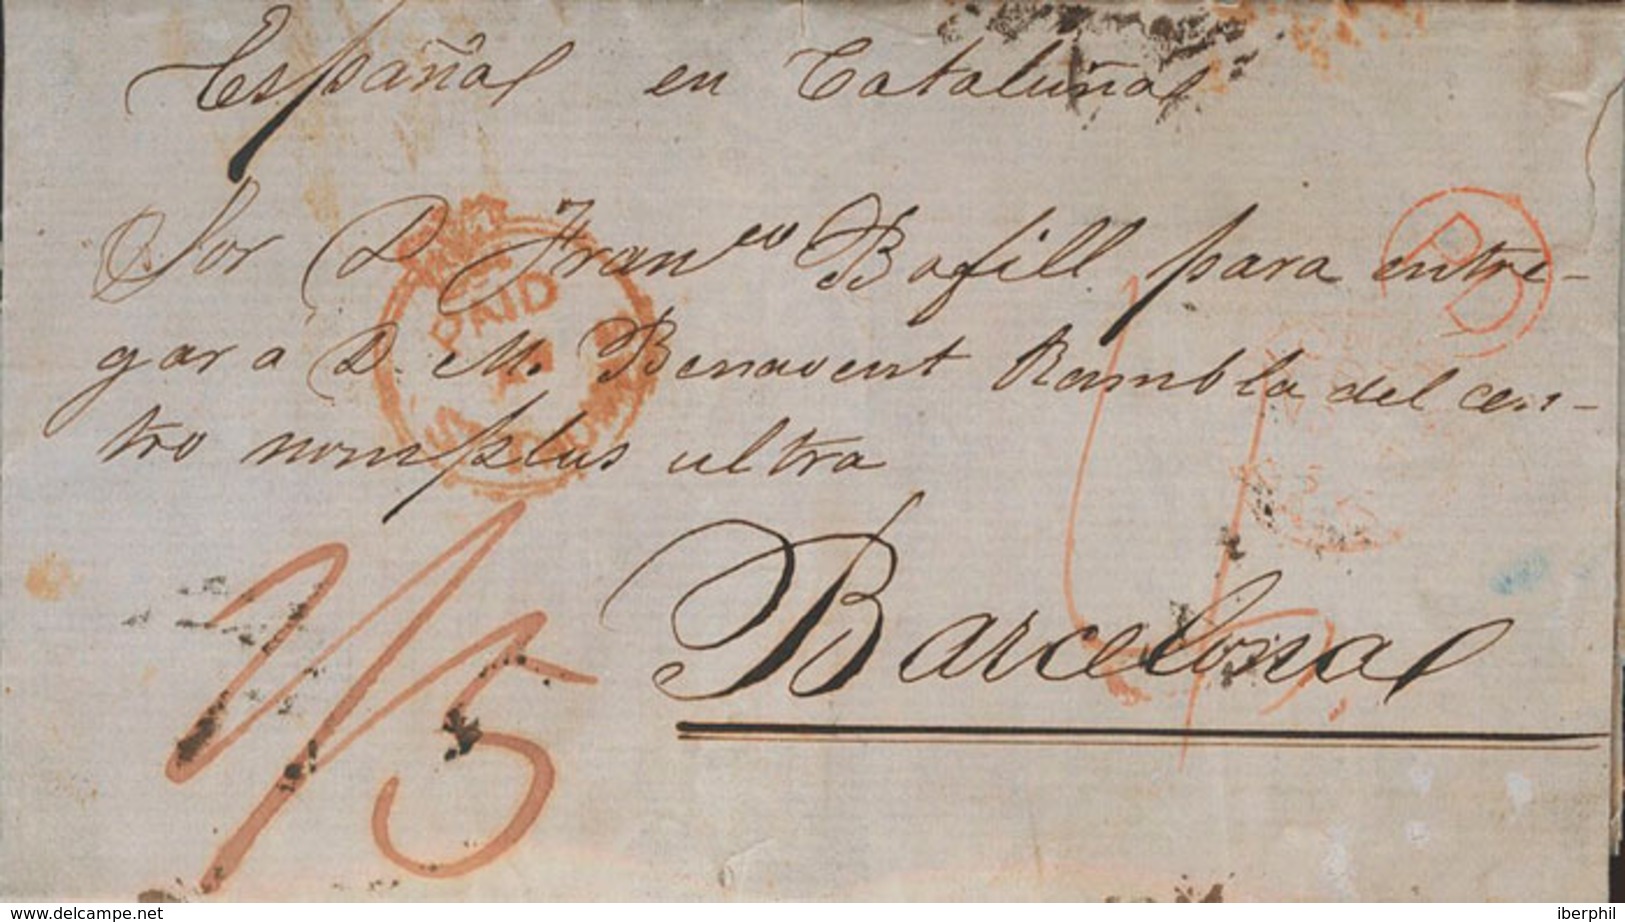 España en Cataluña
Sor D Franco Bofill para entre-
gar a D. M. Benavent Rambla del cen-
tro nomplus ultra
Barcelona
PAID
PD
1/5
www.delcampe.net
iberphil